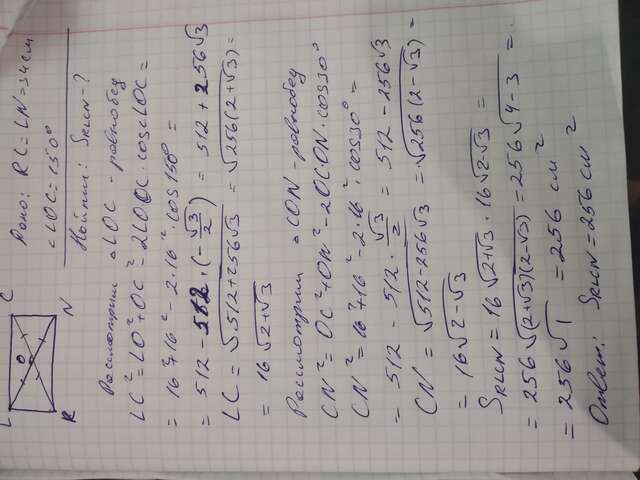 L C
O
R N
Дано: RC = LN = 34 см
∠LOC = 150°
Найти: S RLCN - ?
Рассмотрим △LOC - равнобед
LC² = LO² + OC² - 2LO·OC·cos∠LOC =
= 16² + 16² - 2·16²·cos150° =
= 512 - 512·(-√3/2) = 512 + 256√3
LC = √(512+256√3) = √(256(2+√3)) =
= 16√(2+√3)
Рассмотрим △CON - равнобед
CN² = OC² + ON² - 2OC·ON·cos30°
CN² = 16² + 16² - 2·16²·cos30° =
= 512 - 512·√3/2 = 512 - 256√3
CN = √(512-256√3) = √(256(2-√3)) =
= 16√(2-√3)
S RLCN = 16√(2+√3)·16√(2-√3) =
= 256√((2+√3)(2-√3)) = 256√(4-3) =
= 256√1 = 256 см²
Ответ: S RLCN = 256 см²